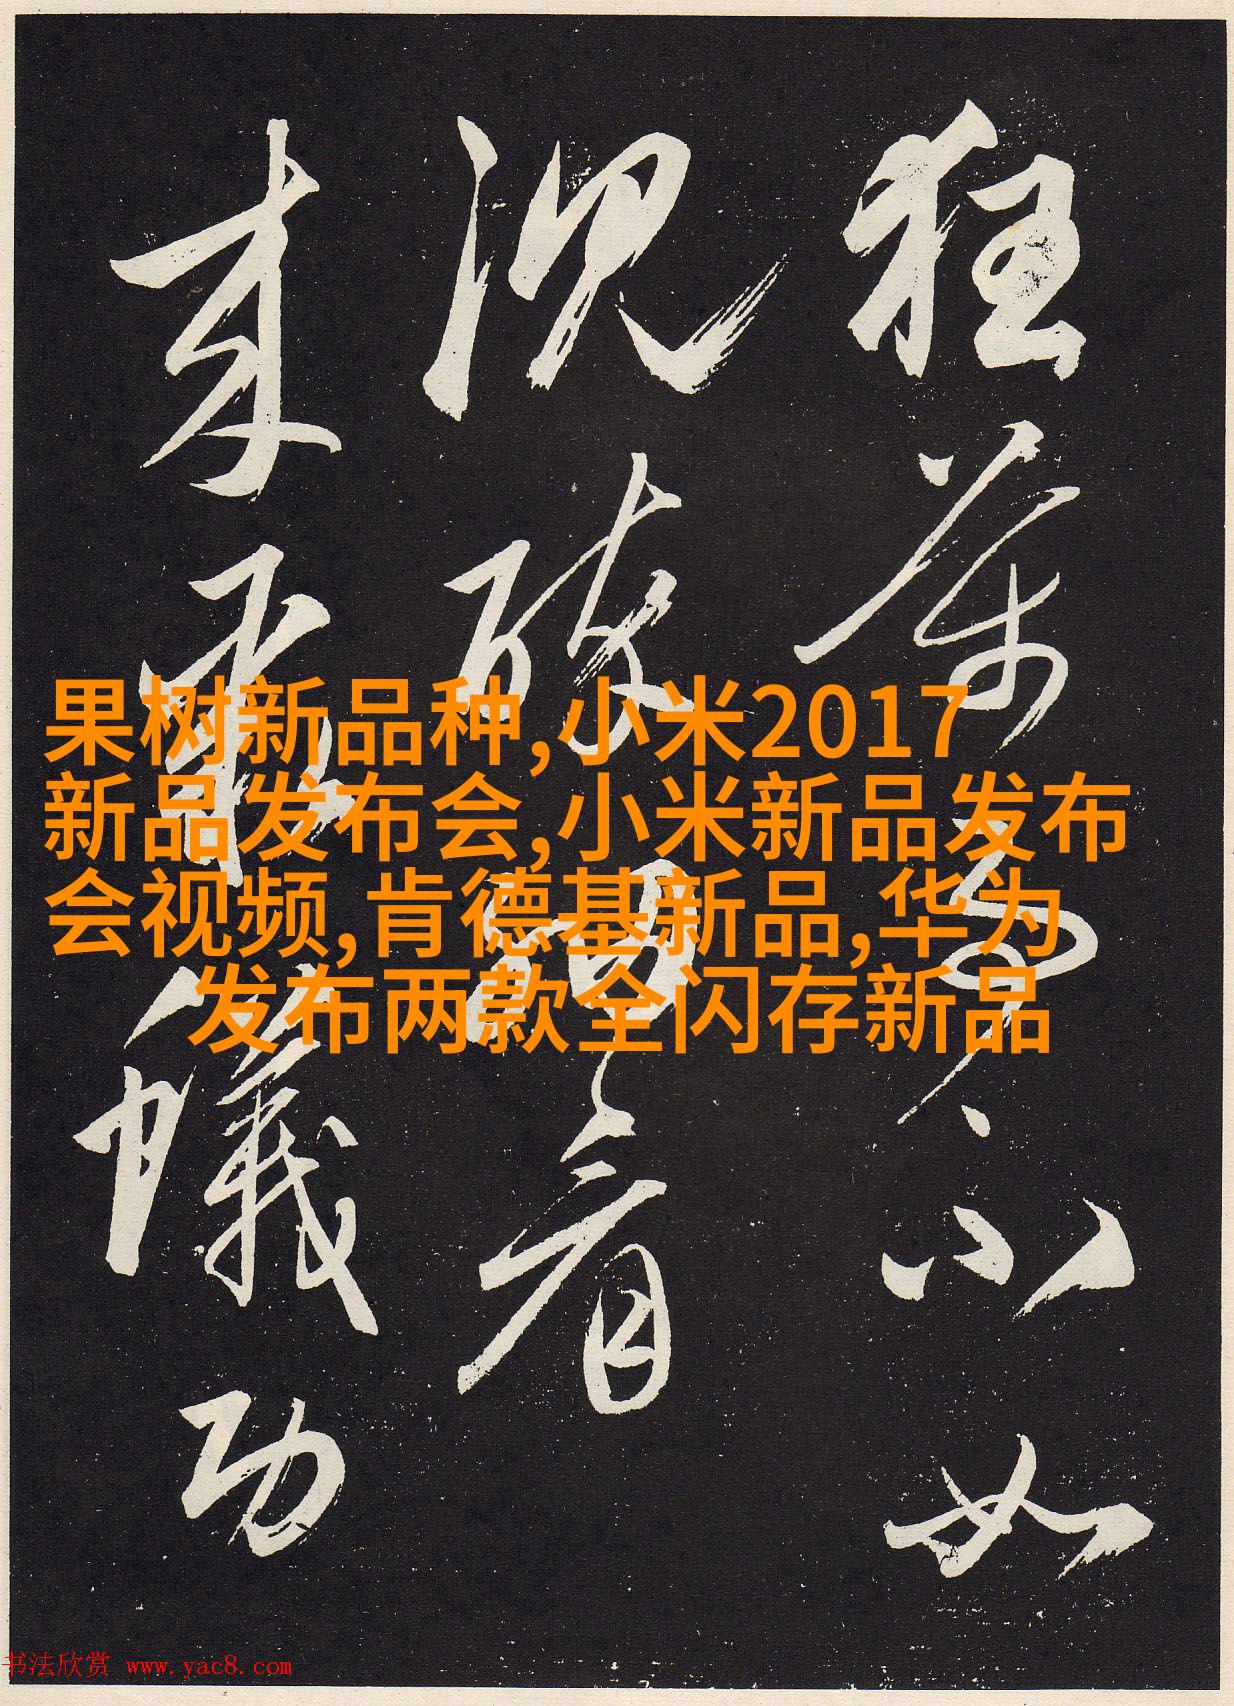 果树新品种,小米2017
新品发布会,小米新品发布
会视频,肯德基新品,华为
发布两款全闪存新品
狂不如
况醉者
来功
书法欣赏 www.yac8.com